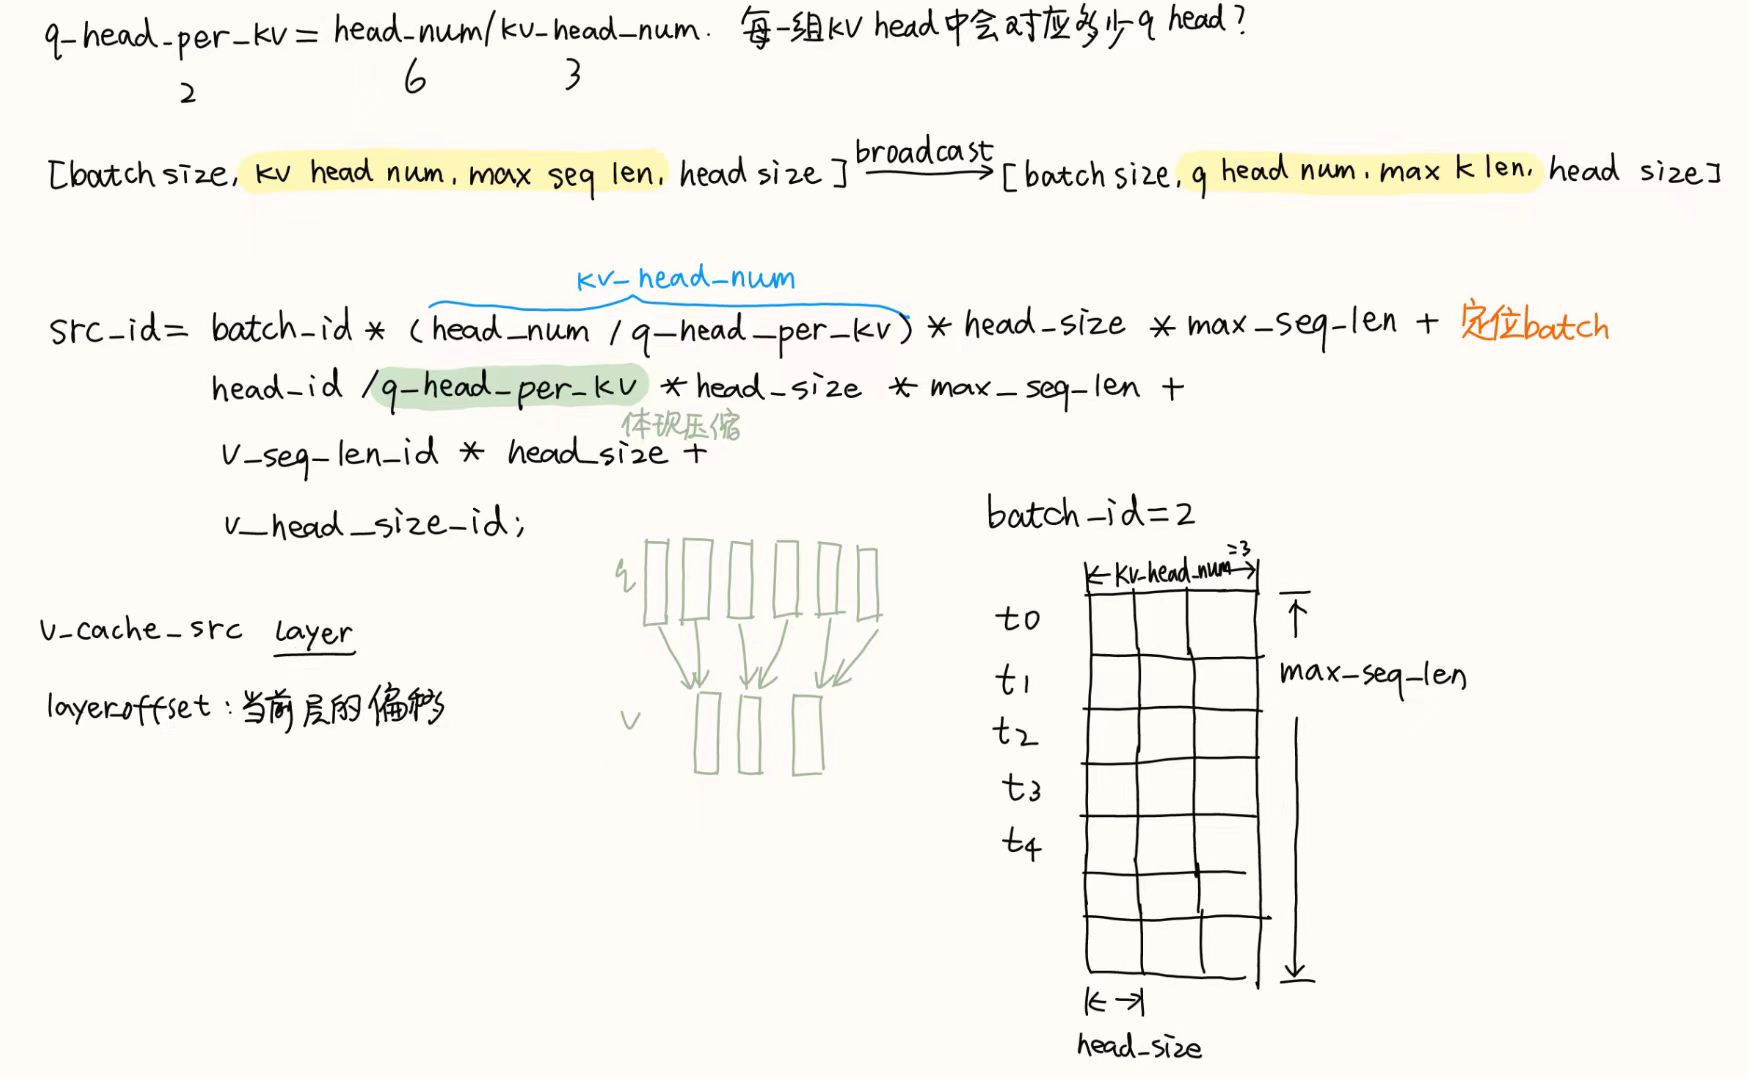 q-head-per-kv = head-num/kv-head-num. 每一组kv head中会对应多少q head?
2 6 3
[batch size, kv head num, max seq len, head size] broadcast [batch size, q head num, max k len, head size]
kv-head-num
src-id= batch-id * (head-num / q-head-per-kv) * head-size * max-seq-len + 定位batch
head-id /q-head-per-kv * head-size * max-seq-len +
体现压缩
v-seq-len-id * head-size +
v-head-size-id;
batch-id=2
q
kv-head-num =3
t0
v-cache-src layer
max-seq-len
t1
layeroffset: 当前层的偏移
v
t2
t3
t4
head-size